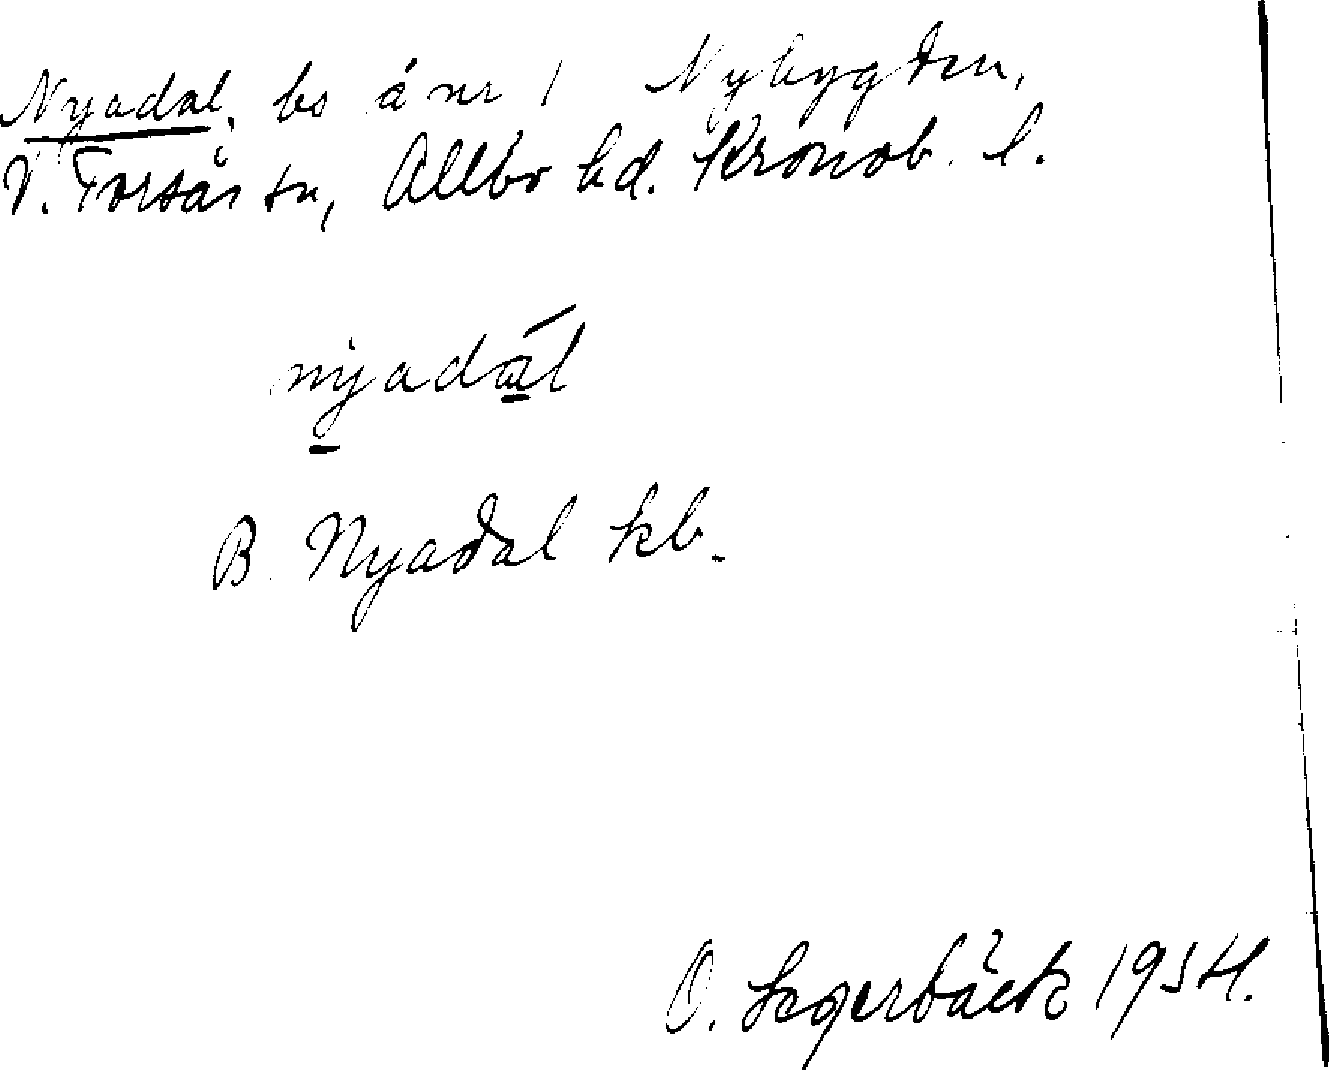 Nyadal, bs å nr 1 Nybygden,
V. Torsås sn, Allbo hd. Kronob. l.
nyadál
B. Nyadal kb.
O. Segerbäck 1954.